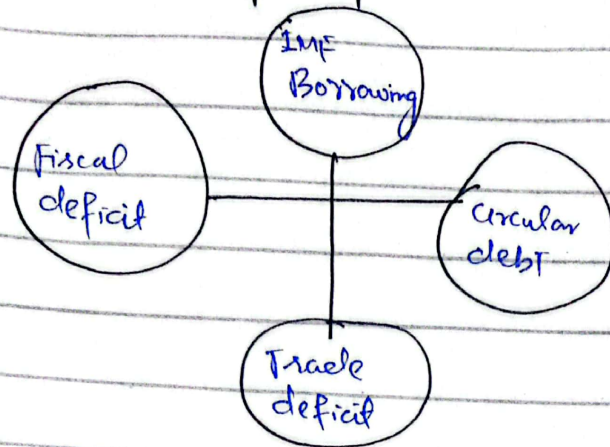 IMF
Borrowing
Fiscal
deficit
circular
debt
Trade
deficit